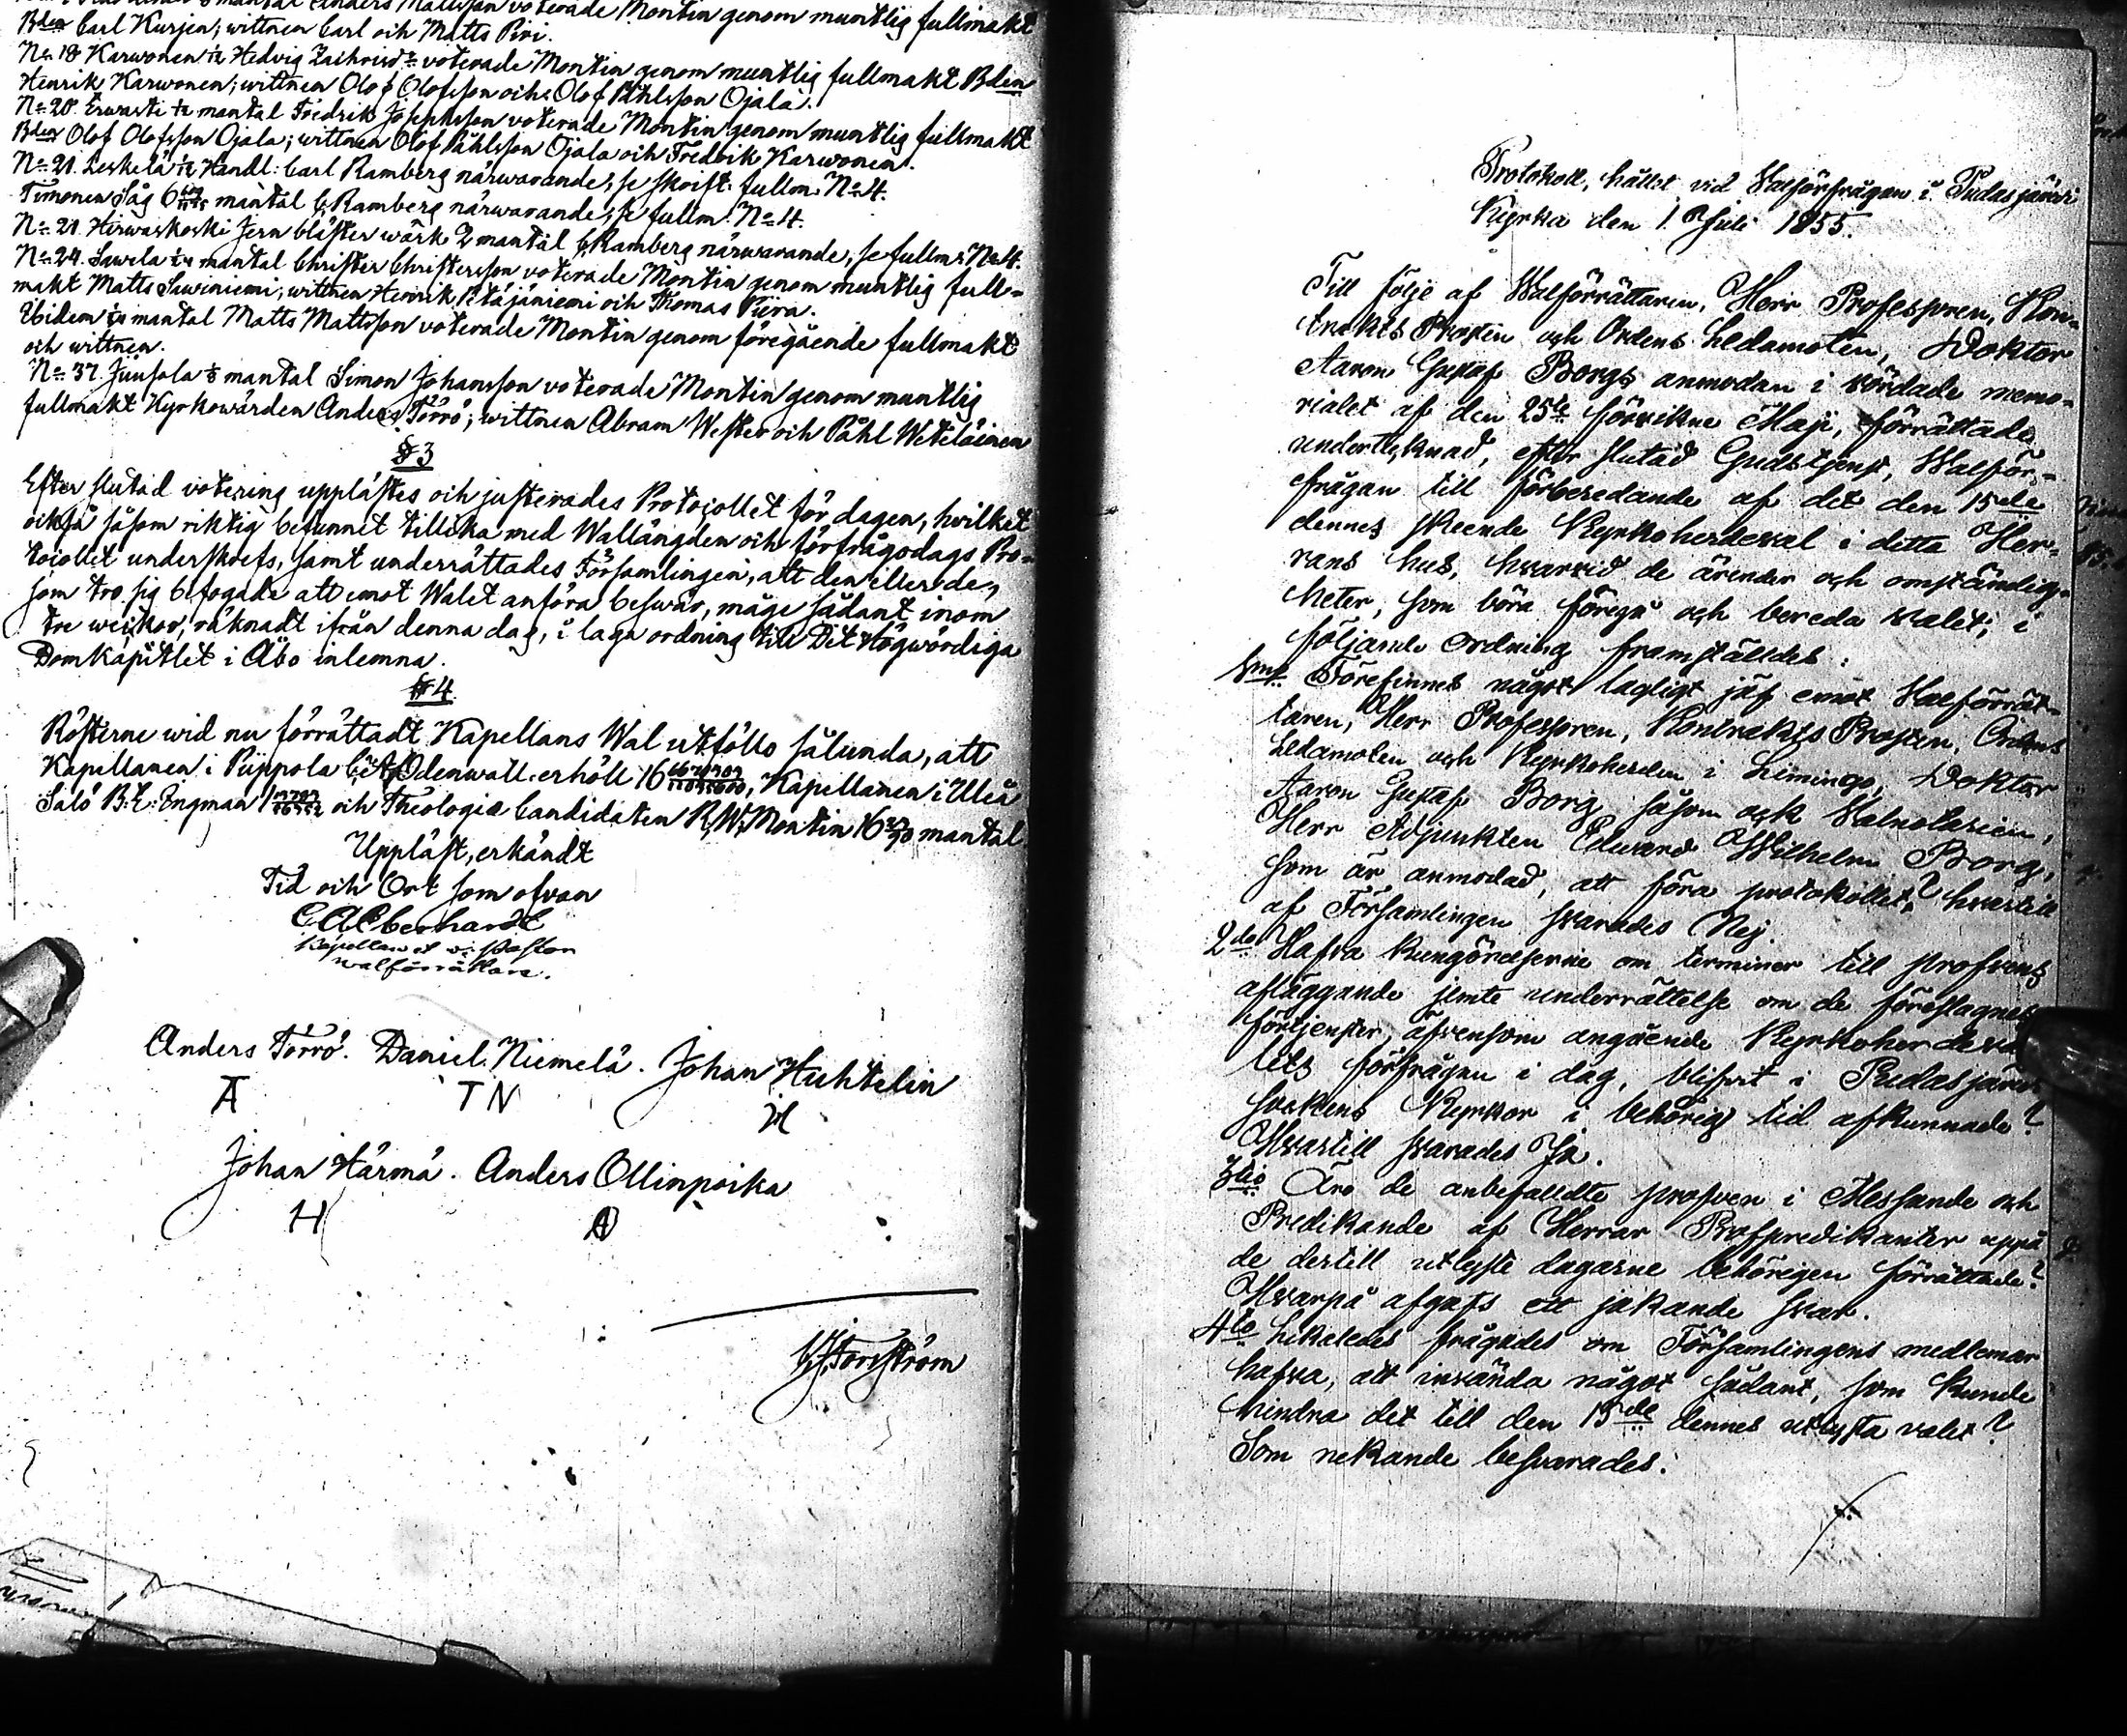 mantal Anders Mattsson voterade Montin genom muntlig fullmakt
Bden Carl Kurjen; wittnen Carl och Matts Piri.
No 18 Karwonen 1/12 Hedvig voterade Montin genom muntlig fullmakt Bden
Henrik Karwonen; wittnen Olof Olofsson och Olof Påhlsson Ojala.
No 20. Erwasti 1/12 mantal Fredrik Josephsson voterade Montin genom muntlig fullmakt
Bden Olof Olofsson Ojala; wittnen Olof Påhlsson Ojala och Fredrik Karwonen.
No 21. Leskelä 1/12 Handl: Carl Ramberg närwarande, se skrift. fullm. No 4.
Timonen Såg 6 mantal C, Ramberg närwarande, se fullm. No 4.
No 21. Hirwaskoski Jern bläster wärk 2 mantal C, Ramberg närwarande, se fullm: No 4.
No 24. Sawela mantal Christer Christersson voterade Montin genom muntlig full-
makt Matts Sawiniemi; wittnen Henrik Pitäjäniemi och Thomas Piira.
Ibidem mantal Matts Mattsson voterade Montin genom föregående fullmakt
och wittnen.
No 37. Juusola 1/3 mantal Simon Johansson voterade Montin genom muntlig
fullmakt Kyrkowärden Anders Törrö; wittnen Abram Wester och Påhl Weteläinen
§ 3
Efter slutad votering upplästes och justerades Protocollet för dagen, hvilket
också såsom riktig befunnet tillika med Wallängden och förfrågodags Pro-
tocollet underskrefs, samt underrättades Församlingen, att den eller de,
som tro sig befogade att emot Walet anföra beswär, måge sådant inom
tre weckor, räknadt ifrån denna dag, i laga ordning till Det Högwördiga
Domkapitlet i Åbo inlemna.
§ 4
Rösterne wid nu förrättadt Kapellans Wal utföllo sålunda, att
Kapellanen i Piippola Odenwall erhöll 16, Kapellanen i Uleå
Salo B: E: Engman 1 och Theologiæ Candidaten R, W, Montin 16 mantal
Uppläst, erkändt
Tid och Ort som ofvan
C A Eberhardt
Kapellan et v: Pastor
walförrättare.
Anders Törrö. Daniel Niemelä. Johan Huhtelin
A TN JH
Johan Härmä. Anders Ollinpoika
H A
Forsström
Protokoll, hållet vid Valförfrågan i Pudasjärvi
Kyrka den 1. Juli 1855.
Till följe af Walförrättaren, Herr Professoren, Kon-
trakts Prosten och Ordens Ledamoten, Doktor
Aaron Gustaf Borgs anmodan i vördade memo-
rialet af den 25te förvikne Maji, förrättade
undertecknad, efter slutad Gudstjenst, Walför-
frågan till förberedande af det den 15de
dennes skeende Kyrkoherdeval i detta Her-
rans hus, hvarvid de ärender och omständig-
heter, som böra föregå och bereda valet, i
följande ordning framställdes:
1mo Förefinnes något lagligt jäf emot Valförrät-
taren, Herr Professoren, Kontrakts Prosten, Ordens
Ledamoten och Kyrkoherden i Limingo, Doktor
Aaron Gustaf Borg såsom ock Valnotarien,
Herr Adjunkten Edvard Wilhelm Borg,
som är anmodad, att föra protokollet? hvartill
af Församlingen svarades Nej.
2do Hafva kungörelserne om terminer till profvens
afläggande jemte underrättelse om de föreslagnes
förtjenster, äfvensom angående Kyrkoherdeva-
lets förfrågan i dag, blifvit i Pudasjärvi
sockens Kyrkor i behörig tid afkunnade?
Hvartill svarades Ja.
3tio Äro de anbefalldte profven i Messande och
Predikande af Herrar Profpredikanter uppå
de dertill utlyste dagarne behörigen förrättade?
Hvarpå afgafs ett jakande svar.
4to Likaledes frågades om Församlingens medlemar
hafva, att invända något sådant, som kunde
hindra det till den 15de dennes utlysta valet?
Som nekande besvarades.